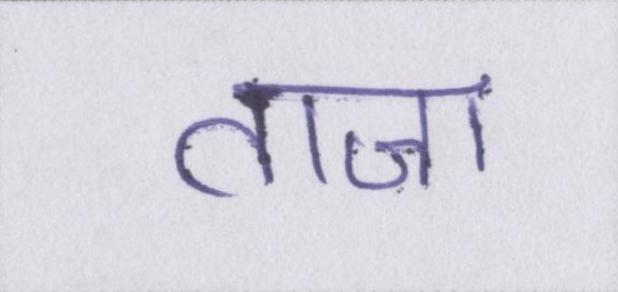 ताजा